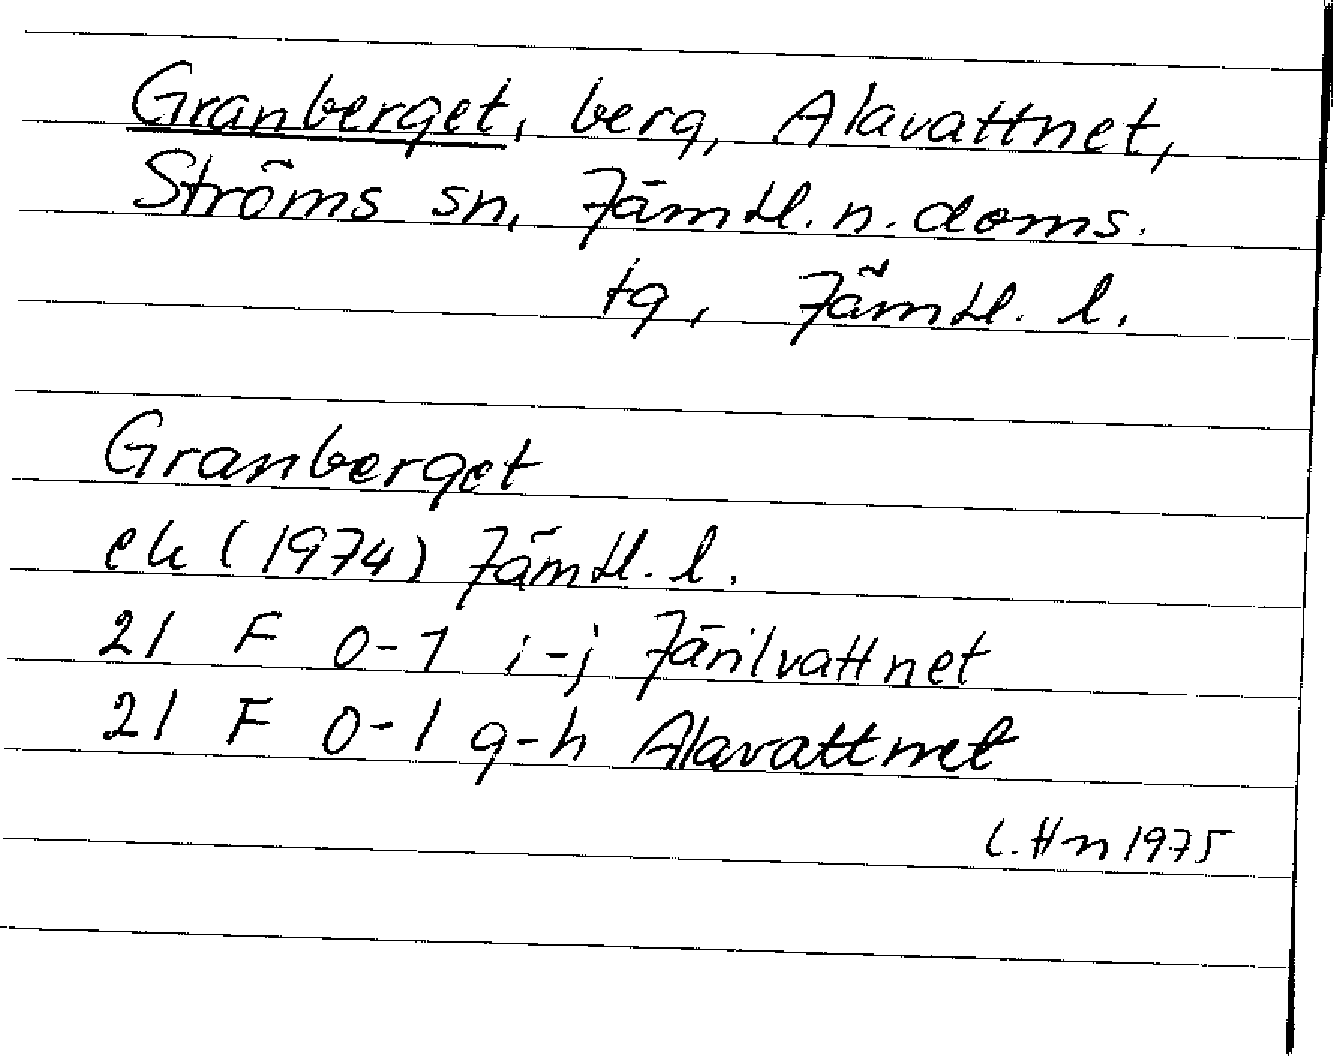 Granberget, berg, Alavattnet,
Ströms sn, Jämtl. n. doms.
tg, Jämtl. l.
Granberget
ek (1974) Jämtl. l.
21 F 0-1 i-j Järilvattnet
21 F 0-1 g-h Alavattnet
L. Hn 1975